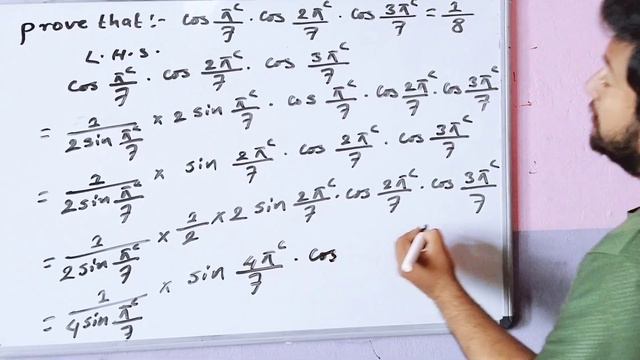 prove that:- cos π^c/7 . cos 2π^c/7 . cos 3π^c/7 = 1/8
L.H.S.
cos π^c/7 . cos 2π^c/7 . cos 3π^c/7
= 1/(2 sin π^c/7) × 2 sin π^c/7 . cos π^c/7 . cos 2π^c/7 . cos 3π^c/7
= 1/(2 sin π^c/7) × sin 2π^c/7 . cos 2π^c/7 . cos 3π^c/7
= 1/(2 sin π^c/7) × 1/2 × 2 sin 2π^c/7 . cos 2π^c/7 . cos 3π^c/7
= 1/(4 sin π^c/7) × sin 4π^c/7 . cos